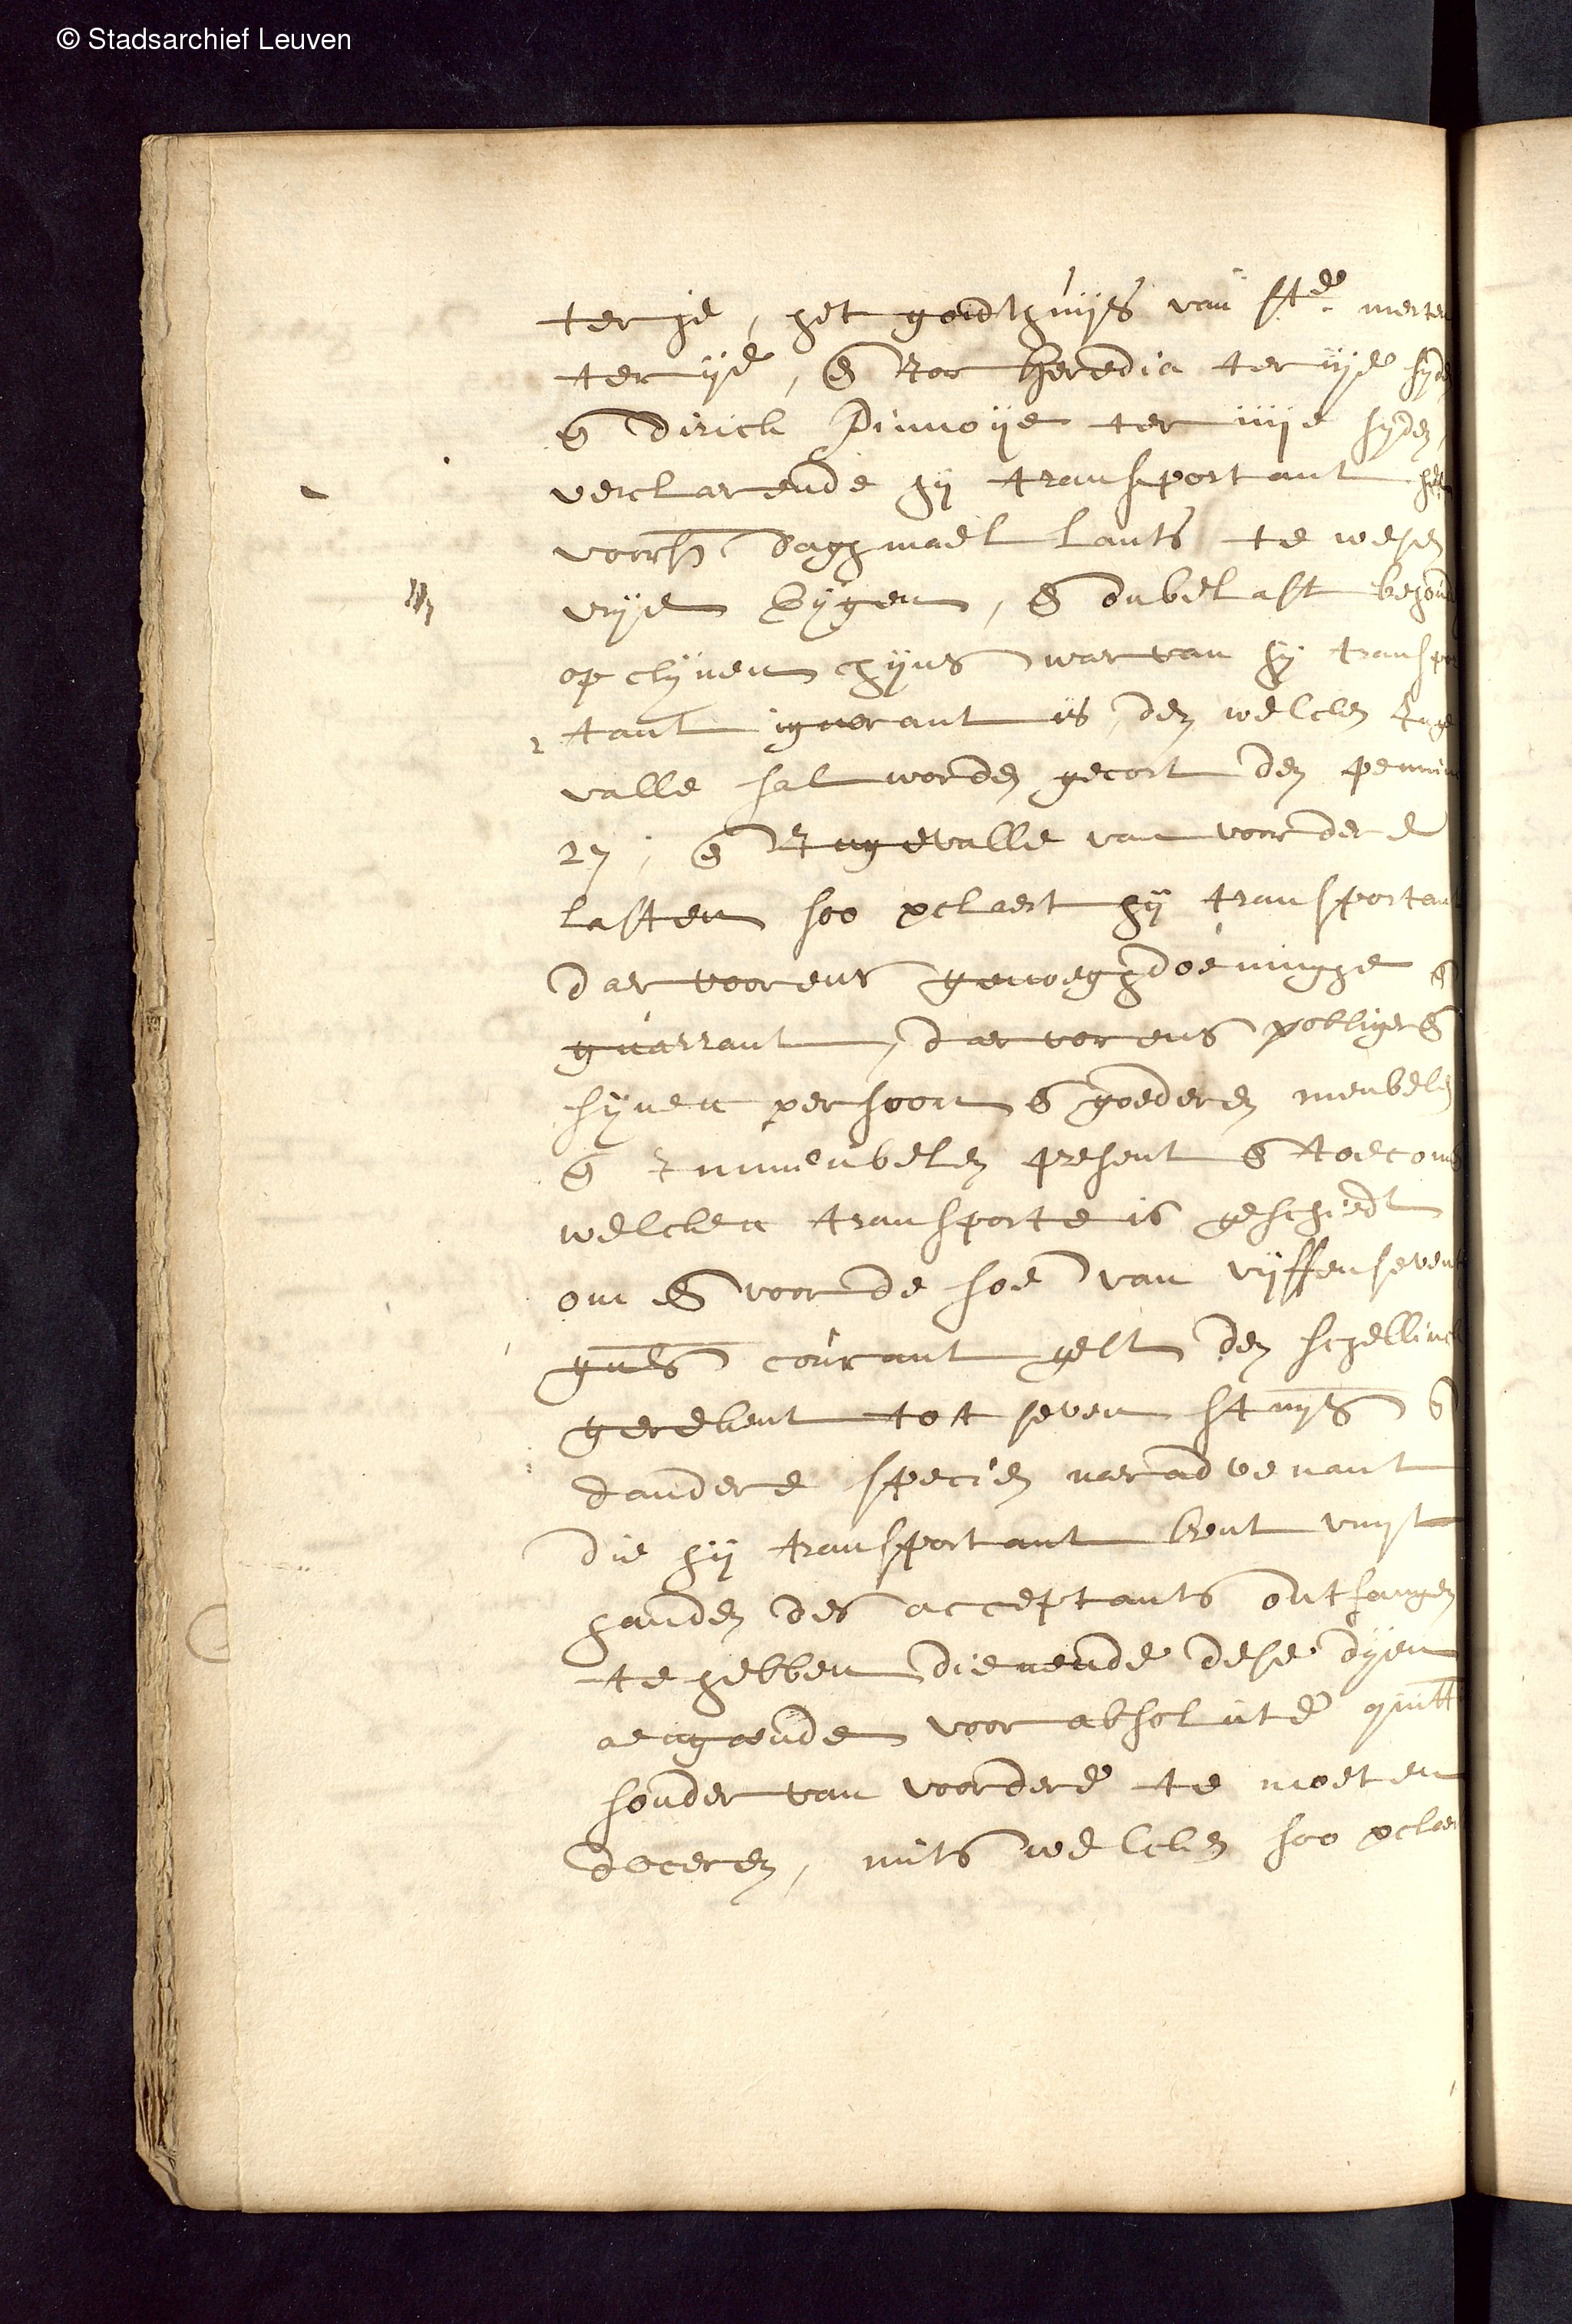 © Stadsarchief Leuven
ter je, het godthuijs van Ste merten
ter ije, en Tor Heredia ter iije syde
en Dirick Pinnoije ter iiije syden,
verclarende hij transportant het
voors daghmael lants te wesen
vrije eijgen, en onbelast behoud
op clijnen chijns waer van hij transpor
tant ignorant is, den welcken Inge
valle sal worden gecort den pennin
27, en Ingevalle van voordere
lasten soo verclaert hij transportant
daer voorens genoeghdoeninghe en
guarrant, daer vorens verobligerende
sijnen persoon en goederen meubelen
en Immeubelen present en toecom
welcken transporte is geschiedt
om en voor de soe van vijffensevent
guls courant gelt den schellinck
gerekent tot seven stuys en
dandere specien naer advenant
die hij transportant kent uuyt
handen des acceptants ontfangen
te hebben dienende dese dijen
aengaende voor absolute quitt
sonder van voordere te moeten
doceren, mits welcken soo verclaer